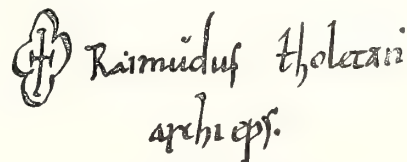 Raimũdus tholetani
archieps̄.